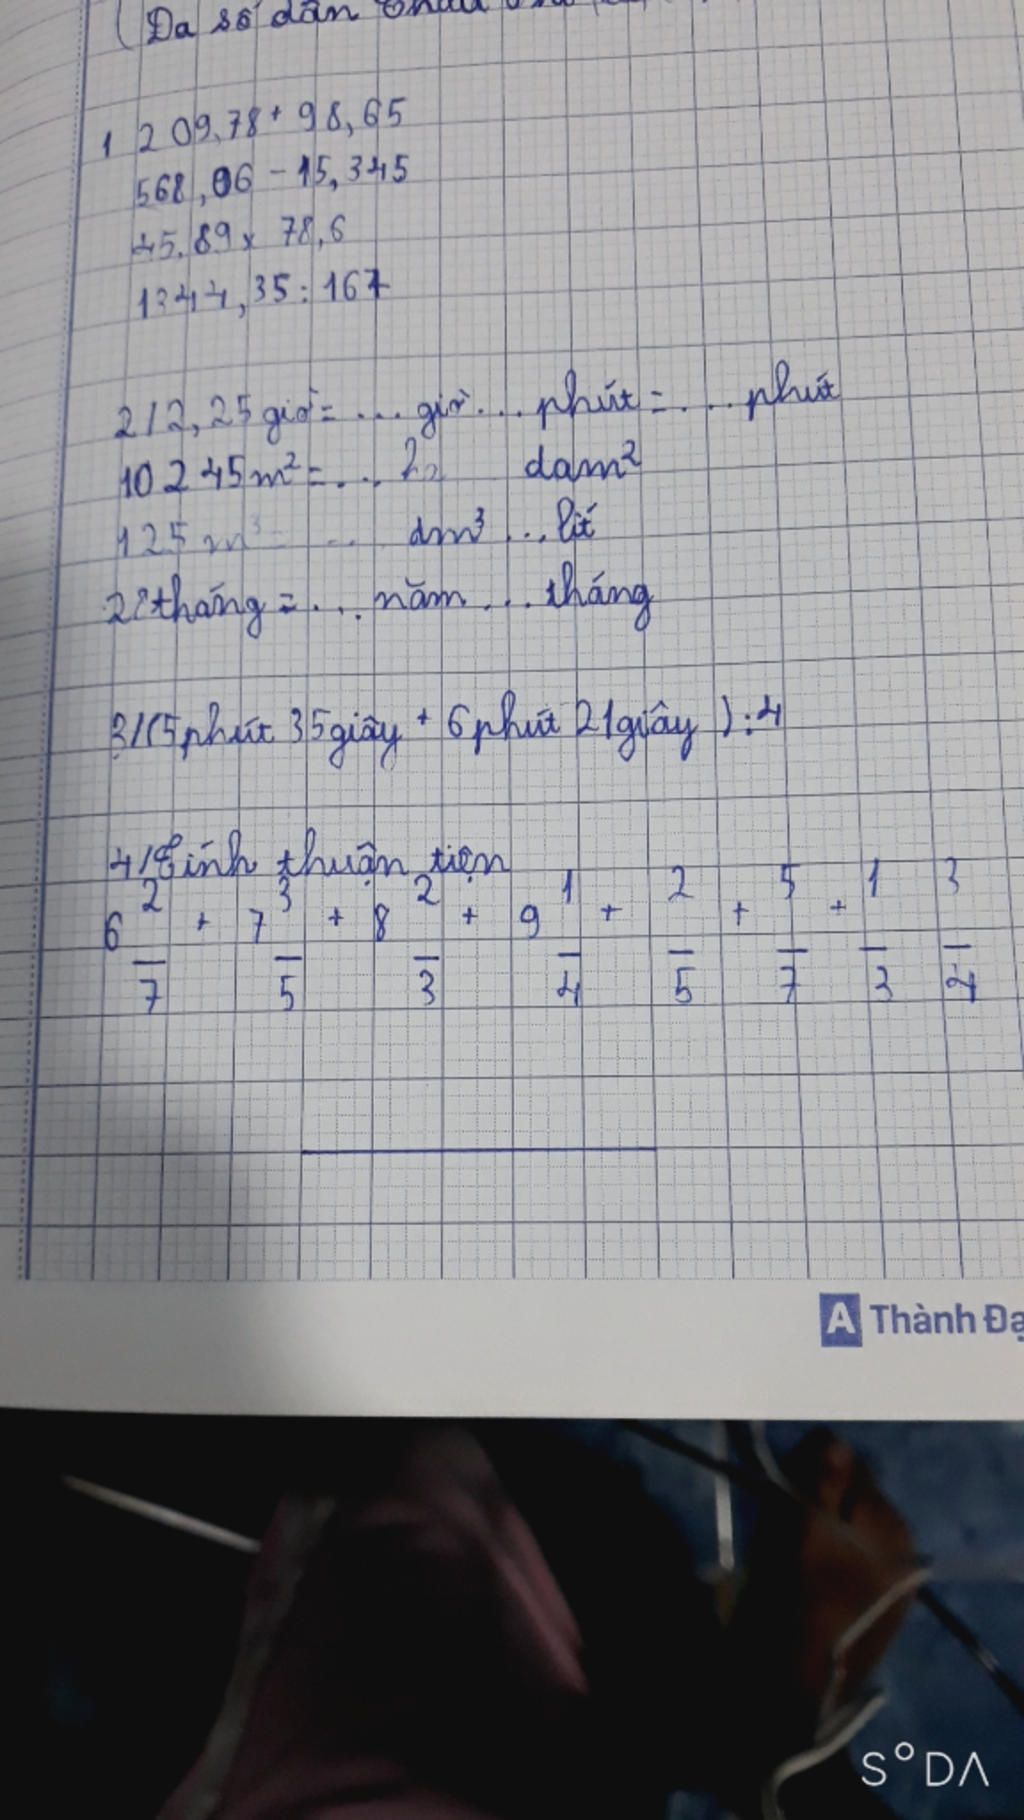 (Da số dân
1 209,78 + 98,65
568,06 - 15,345
45,89 x 78,6
1344,35 : 167
2/2,25 giờ = ... giờ ... phút = ... phút
10 245 m² = ... dam²
125 m³ = ... dm³ ... lít
28 tháng = ... năm ... tháng
3/(5 phút 35 giây + 6 phút 21 giây) : 4
4/Tính thuận tiện
6 2/7 + 7 3/5 + 8 2/3 + 9 1/4 + 2/5 + 5/7 + 1/3 3/4
A Thành Đạ
S°DA